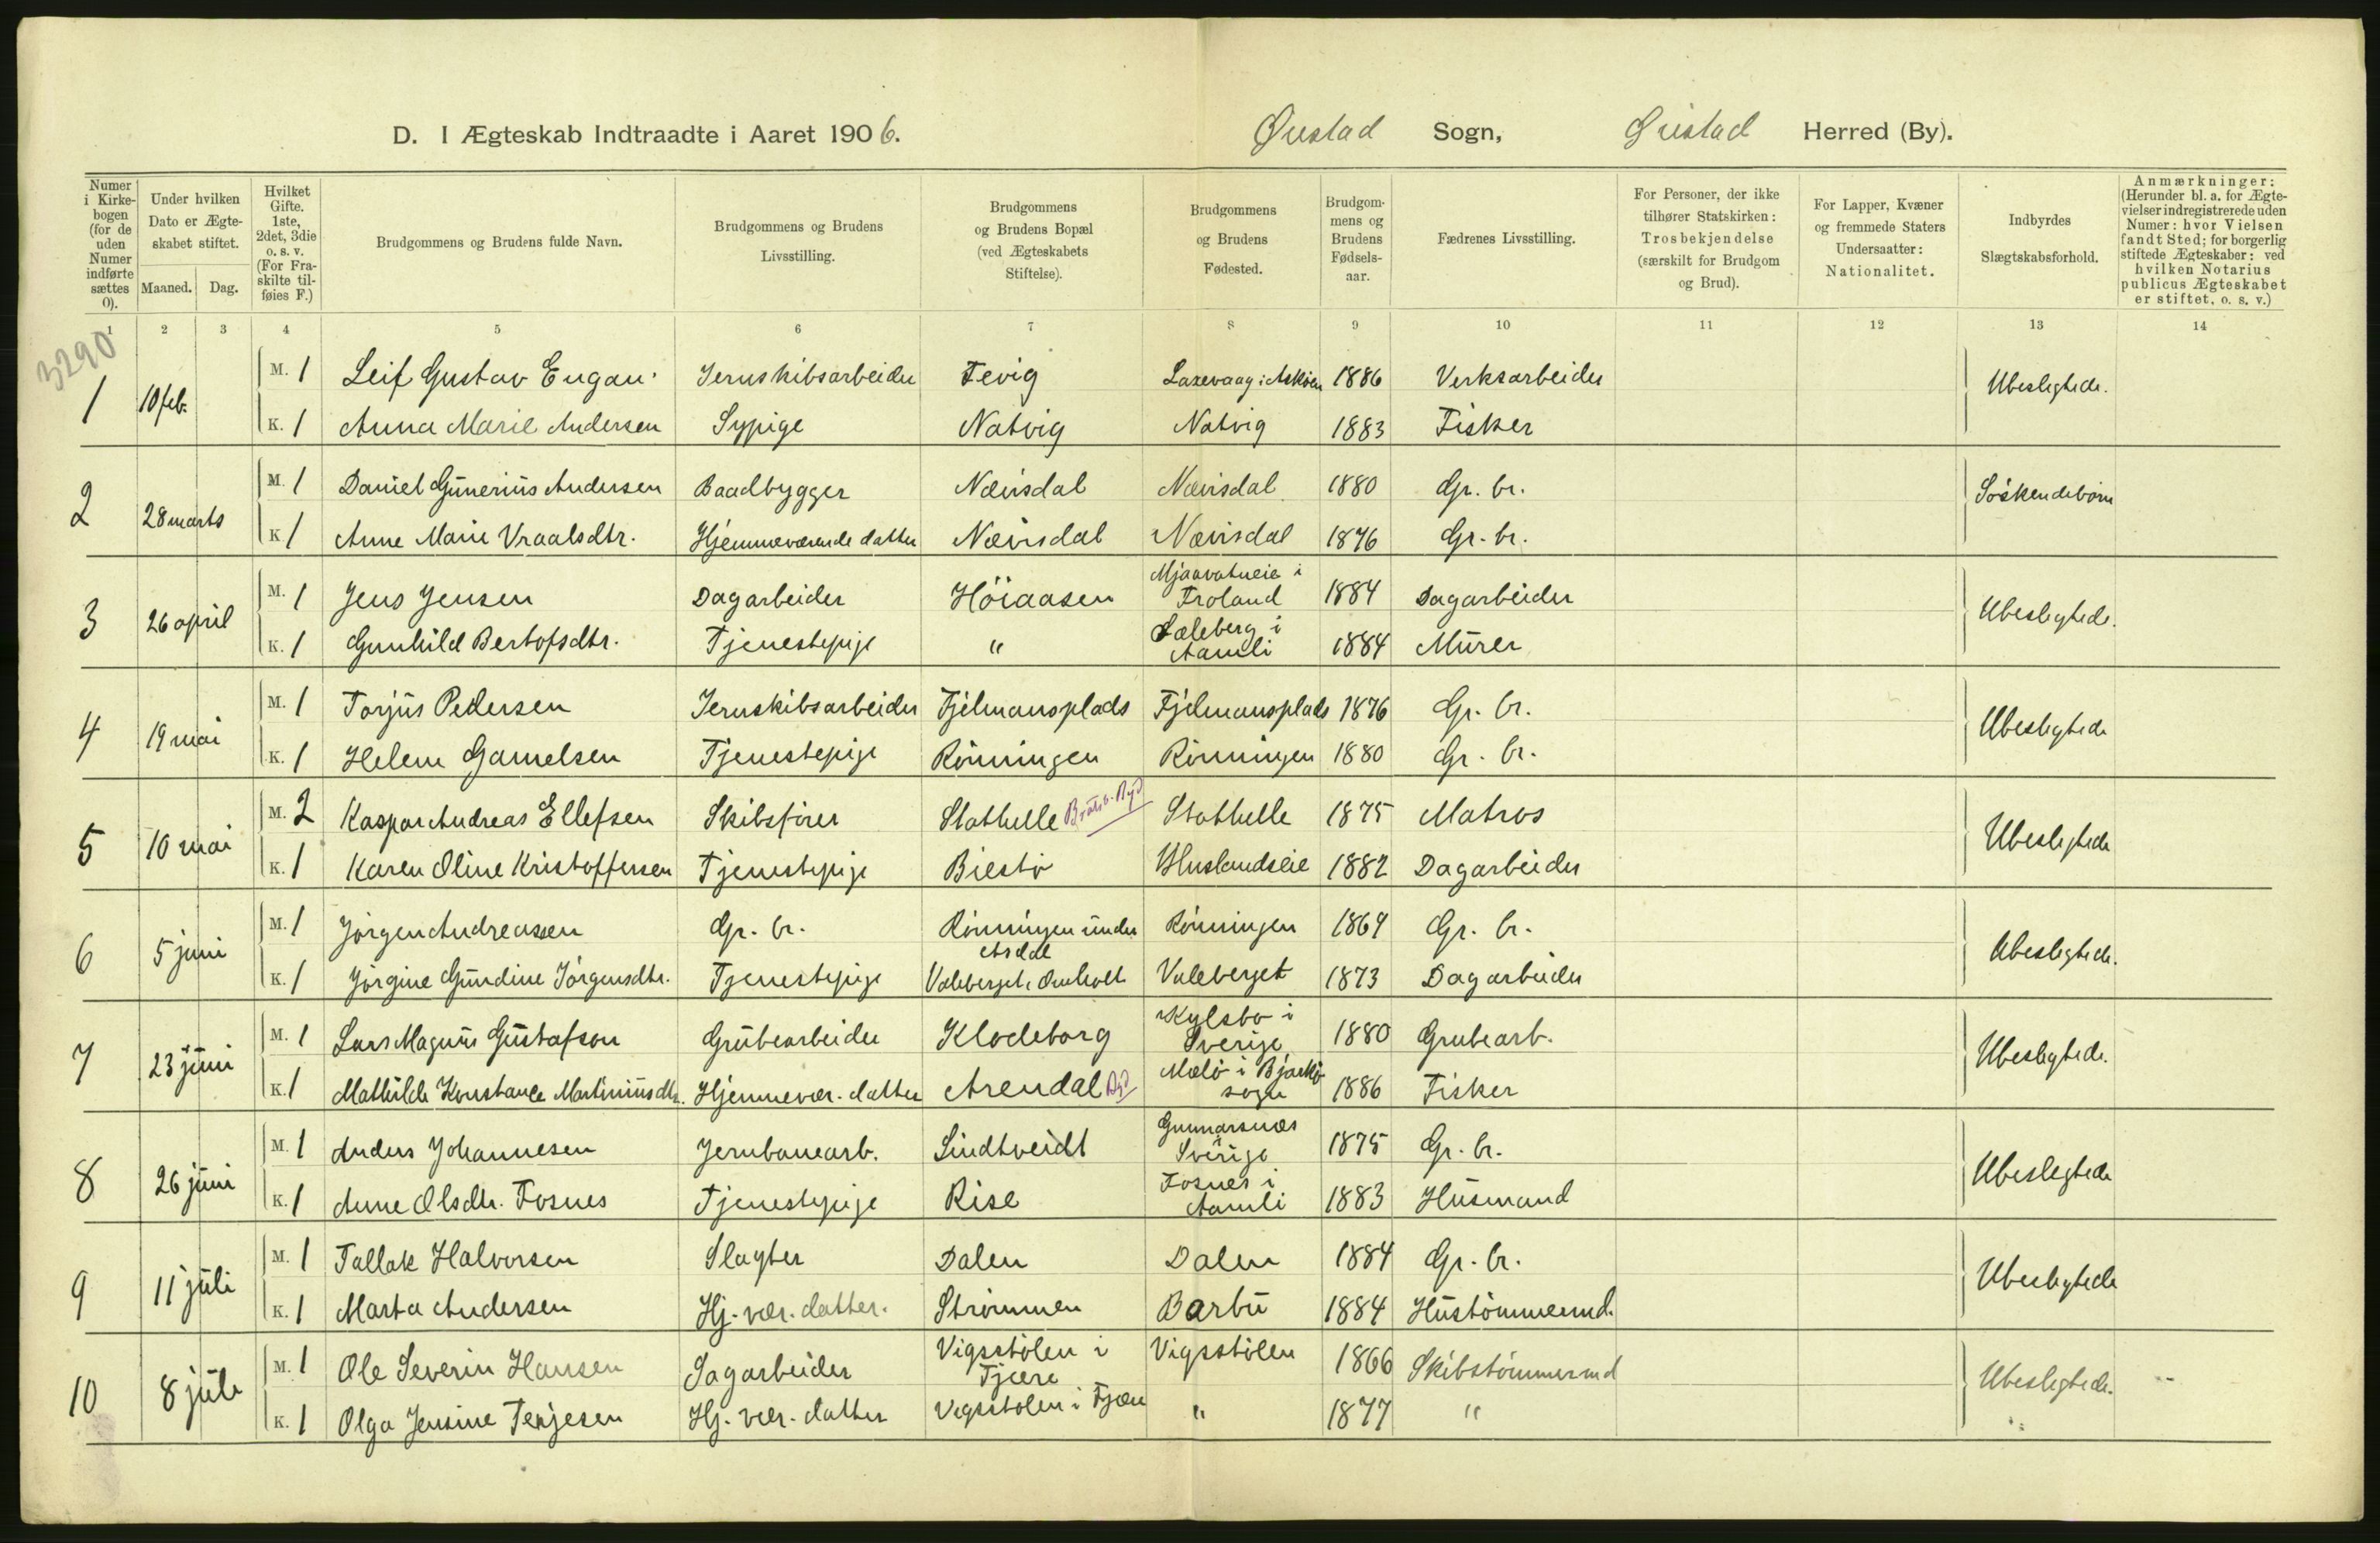 D. I Ægteskab Indtraadte i Aaret 1906. Øiestad Sogn, Øiestad Herred (By).
Numer i Kirkebogen (for de uden Numer indførte sættes 0).
Under hvilken Dato er Ægteskabet stiftet.
Maaned. Dag.
Hvilket Gifte. 1ste, 2det, 3die o. s. v. (For Fraskilte tilføies F.)
Brudgommens og Brudens fulde Navn.
Brudgommens og Brudens Livsstilling.
Brudgommens og Brudens Bopæl (ved Ægteskabets Stiftelse).
Brudgommens og Brudens Fødested.
Brudgommens og Brudens Fødselsaar.
Fædrenes Livsstilling.
For Personer, der ikke tilhører Statskirken: Trosbekjendelse (særskilt for Brudgom og Brud).
For Lapper, Kvæner og fremmede Staters Undersaatter: Nationalitet.
Indbyrdes Slægtskabsforhold.
Anmærkninger: (Herunder bl. a. for Ægtevielser indregistrerede uden Numer: hvor Vielsen fandt Sted; for borgerlig stiftede Ægteskaber: ved hvilken Notarius publicus Ægteskabet er stiftet, o. s. v.)
1 2 3 4 5 6 7 8 9 10 11 12 13 14
3290
1 10 feb. M. 1 Leif Gustav Eugan Jernskibsarbeider Fevig Laxevaag i Askøen 1886 Verksarbeider Ubeslegtede.
K. 1 Anna Marie Andersen Sypige Natvig Natvig 1883 Fisker
2 28 marts M. 1 Daniel Gunerius Andersen Baadbygger Nævisdal Nævisdal 1880 Gr. br. Söskendebörn
K. 1 Anne Marie Vraalsdtr. Hjemmeværende datter Nævisdal Nævisdal 1876 Gr. br.
3 26 april M. 1 Jens Jensen Dagarbeider Höiaasen Mjaavatneie i Froland 1884 Dagarbeider Ubeslegtede.
K. 1 Gunhild Bertofsdtr. Tjenestepige " Sæleberg i Aamli 1884 Murer
4 19 mai M. 1 Torjus Pedersen Jernskibsarbeider Fjelmansplads Fjelmansplads 1876 Gr. br. Ubeslegtede
K. 1 Helene Gamelsen Tjenestepige Rönningen Rönningen 1880 Gr. br.
5 10 mai M. 2 Kaspar Andreas Ellefsen Skibsförer Stathelle Bratsb. Byd Stathelle 1875 Matros Ubeslegtede
K. 1 Karen Oline Kristoffersen Tjenestepige Biestö Huslandseie 1882 Dagarbeider
6 5 juni M. 1 Jörgen Andreassen Gr. br. Rönningen under Asdal Rönningen 1869 Gr. br. Ubeslegtede.
K. 1 Jörgine Gundine Jörgensdtr. Tjenestepige Valeberget, Omholt Valeberget 1873 Dagarbeider
7 23 juni M. 1 Lars Magnus Gustafson Grubearbeider Klodeborg Kylsbo i Sverige 1880 Grubearb. Ubeslegtede.
K. 1 Mathilde Konstance Martiniusdtr. Hjemmevær. datter Arendal Byd Malö i Bjarkö sogn 1886 Fisker
8 26 juni M. 1 Anders Johannesen Jernbanearb. Lindtveidt Gunnarsnæs Sverige 1875 Gr. br. Ubeslegtede
K. 1 Anne Olsdtr. Fosnes Tjenestepige Rise Fosnes i Aamli 1883 Husmand
9 11 juli M. 1 Tallak Halvorsen Slagter Dalen Dalen 1884 Gr. br. Ubeslegtede
K. 1 Marta Andersen Hj. vær. datter. Strömmen Barbu 1884 Hustömmermd.
10 8 juli M. 1 Ole Severin Hansen Sagarbeider Vigsstölen i Fjære Vigsstölen 1866 Skibstömmermd Ubeslegtede.
K. 1 Olga Jensine Terjesen Hj. vær. datter Vigsstölen i Fjære " 1877 "